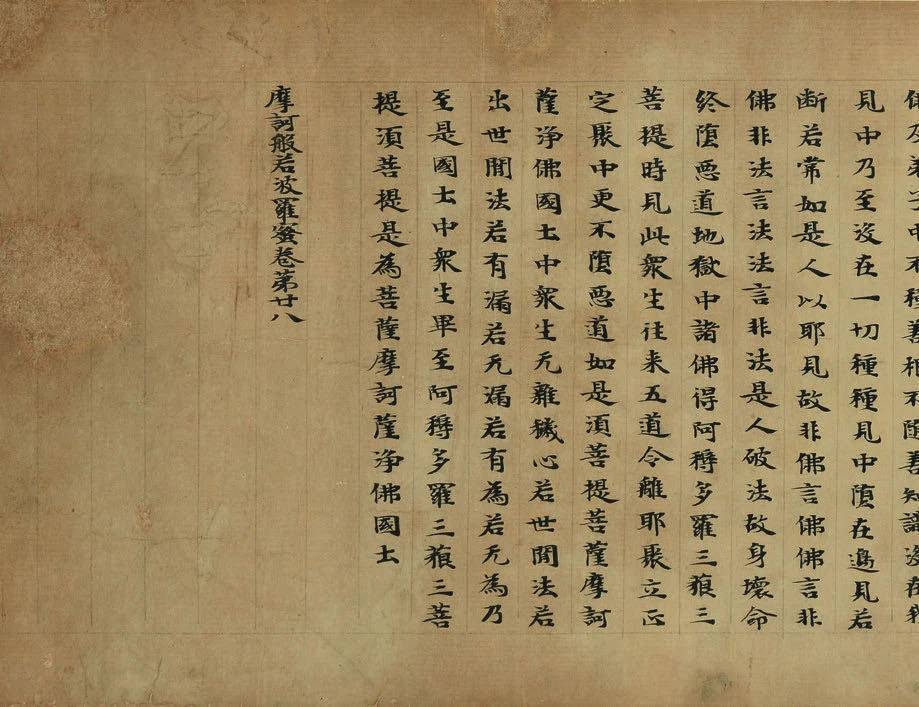 佛及弟子中不種善根不隨善知識沒在我
見中乃至沒在一切種種見中墮在邊見若
断若常如是人以耶見故非佛言佛佛言非
佛非法言法法言非法是人破法故身壞命
終墮惡道地獄中諸佛得阿耨多羅三藐三
菩提時見此衆生往来五道令離耶聚立㱏
定聚中更不墮惡道如是湏菩提菩薩摩訶
薩淨佛國土中衆生无雜穢心若世間法若
出世間法若有漏若无漏若有為若无為乃
至是國土中衆生畢至阿耨多羅三藐三菩
提湏菩提是為菩薩摩訶薩淨佛國土
摩訶般若波羅蜜卷第廿八